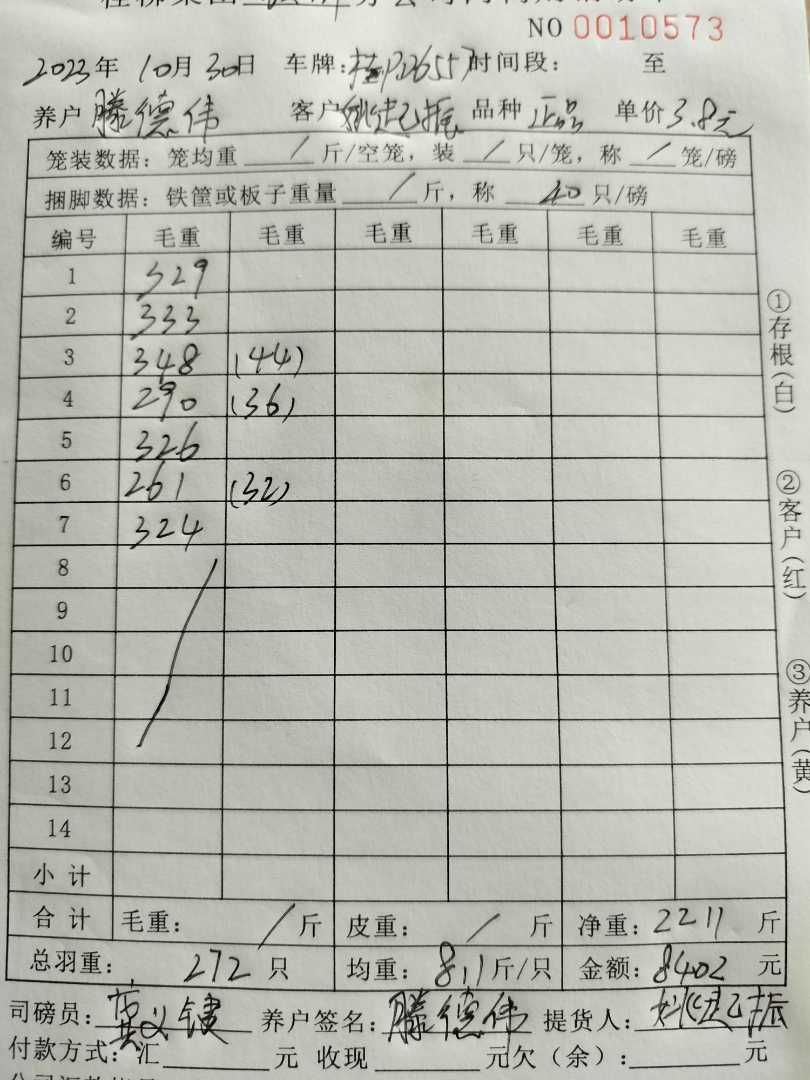 NO 0010573
2023年 10月30日 车牌:桂P26557时间段: 至
养户 滕德伟 客户 品种 正品 单价3.8元
笼装数据:笼均重 / 斤/空笼,装 / 只/笼,称 / 笼/磅
捆脚数据:铁筐或板子重量 / 斤,称 40 只/磅
编号 毛重 毛重 毛重 毛重 毛重 毛重
1 329
2 333
3 348 (44)
4 290 (36)
5 326
6 261 (32)
7 324
8
9
10
11
12
13
14
小计
合计 毛重: / 斤 皮重: / 斤 净重:2211 斤
总羽重: 272 只 均重: 8.1斤/只 金额:8402 元
司磅员: 养户签名:滕德伟 提货人:
付款方式:汇 元 收现 元欠(余): 元
①存根(白)
②客户(红)
③养户(黄)